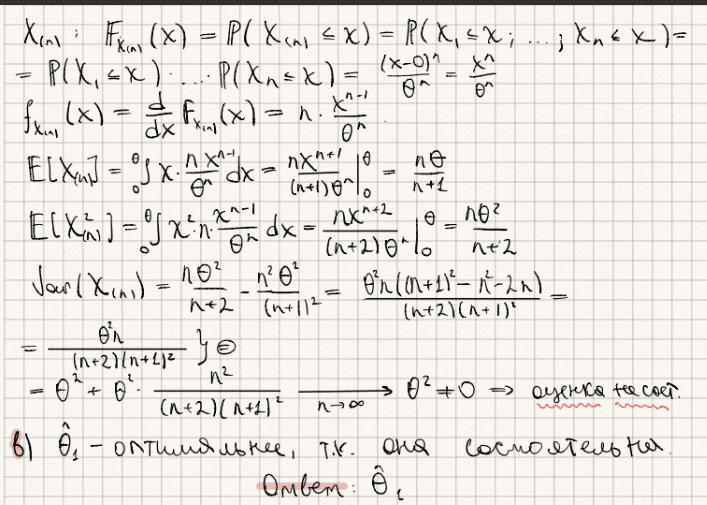 X₍ₙ₎: F_{X₍ₙ₎}(x) = P(X₍ₙ₎ ≤ x) = P(X₁ ≤ x; ...; Xₙ ≤ x) =
= P(X₁ ≤ x) · ... · P(Xₙ ≤ x) = (x-0)ⁿ/θⁿ = xⁿ/θⁿ
f_{X₍ₙ₎}(x) = d/dx F_{X₍ₙ₎}(x) = n · xⁿ⁻¹/θⁿ
E[X₍ₙ₎] = ₀^θ∫ x · n xⁿ⁻¹/θⁿ dx = nxⁿ⁺¹/((n+1)θⁿ) |₀^θ = nθ/(n+1)
E[X²₍ₙ₎] = ₀^θ∫ x² · n · xⁿ⁻¹/θⁿ dx = nxⁿ⁺²/((n+2)θⁿ) |₀^θ = nθ²/(n+2)
Var(X₍ₙ₎) = nθ²/(n+2) - n²θ²/(n+1)² = θ²n((n+1)² - n² - 2n)/((n+2)(n+1)²) =
= θ²n/((n+2)(n+1)²) } ⊜
= θ² + θ² · n²/((n+2)(n+1)²) →_{n→∞} θ² ≠ 0 ⇒ оценка не сост.
в) θ̂₁ - оптимальнее, т.к. она состоятельна.
Ответ: θ̂₁